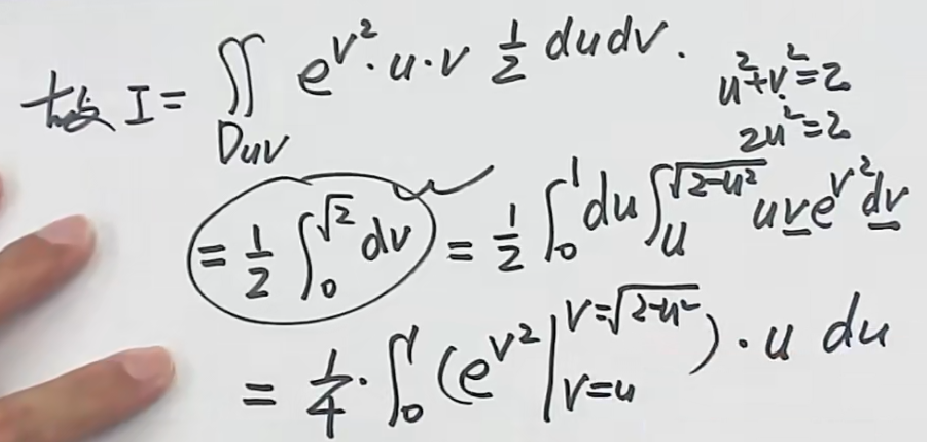 故 I = ∬_{Duv} e^{v²}·u·v ½ du dv.
u²+v²=2
2u²=2
= ½ ∫₀^{√2} dv = ½ ∫₀¹ du ∫_u^{√(2-u²)} u v e^{v²} dv
= ¼·∫₀¹ (e^{v²} |_{v=u}^{v=√(2-u²)})·u du